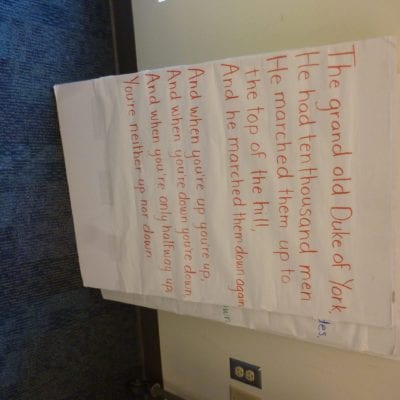 The grand old Duke of York,
He had ten thousand men
He marched them up to
the top of the hill,
And he marched them down again
And when you're up you're up,
And when you're down you're down
And when you're only halfway up
You're neither up nor down.